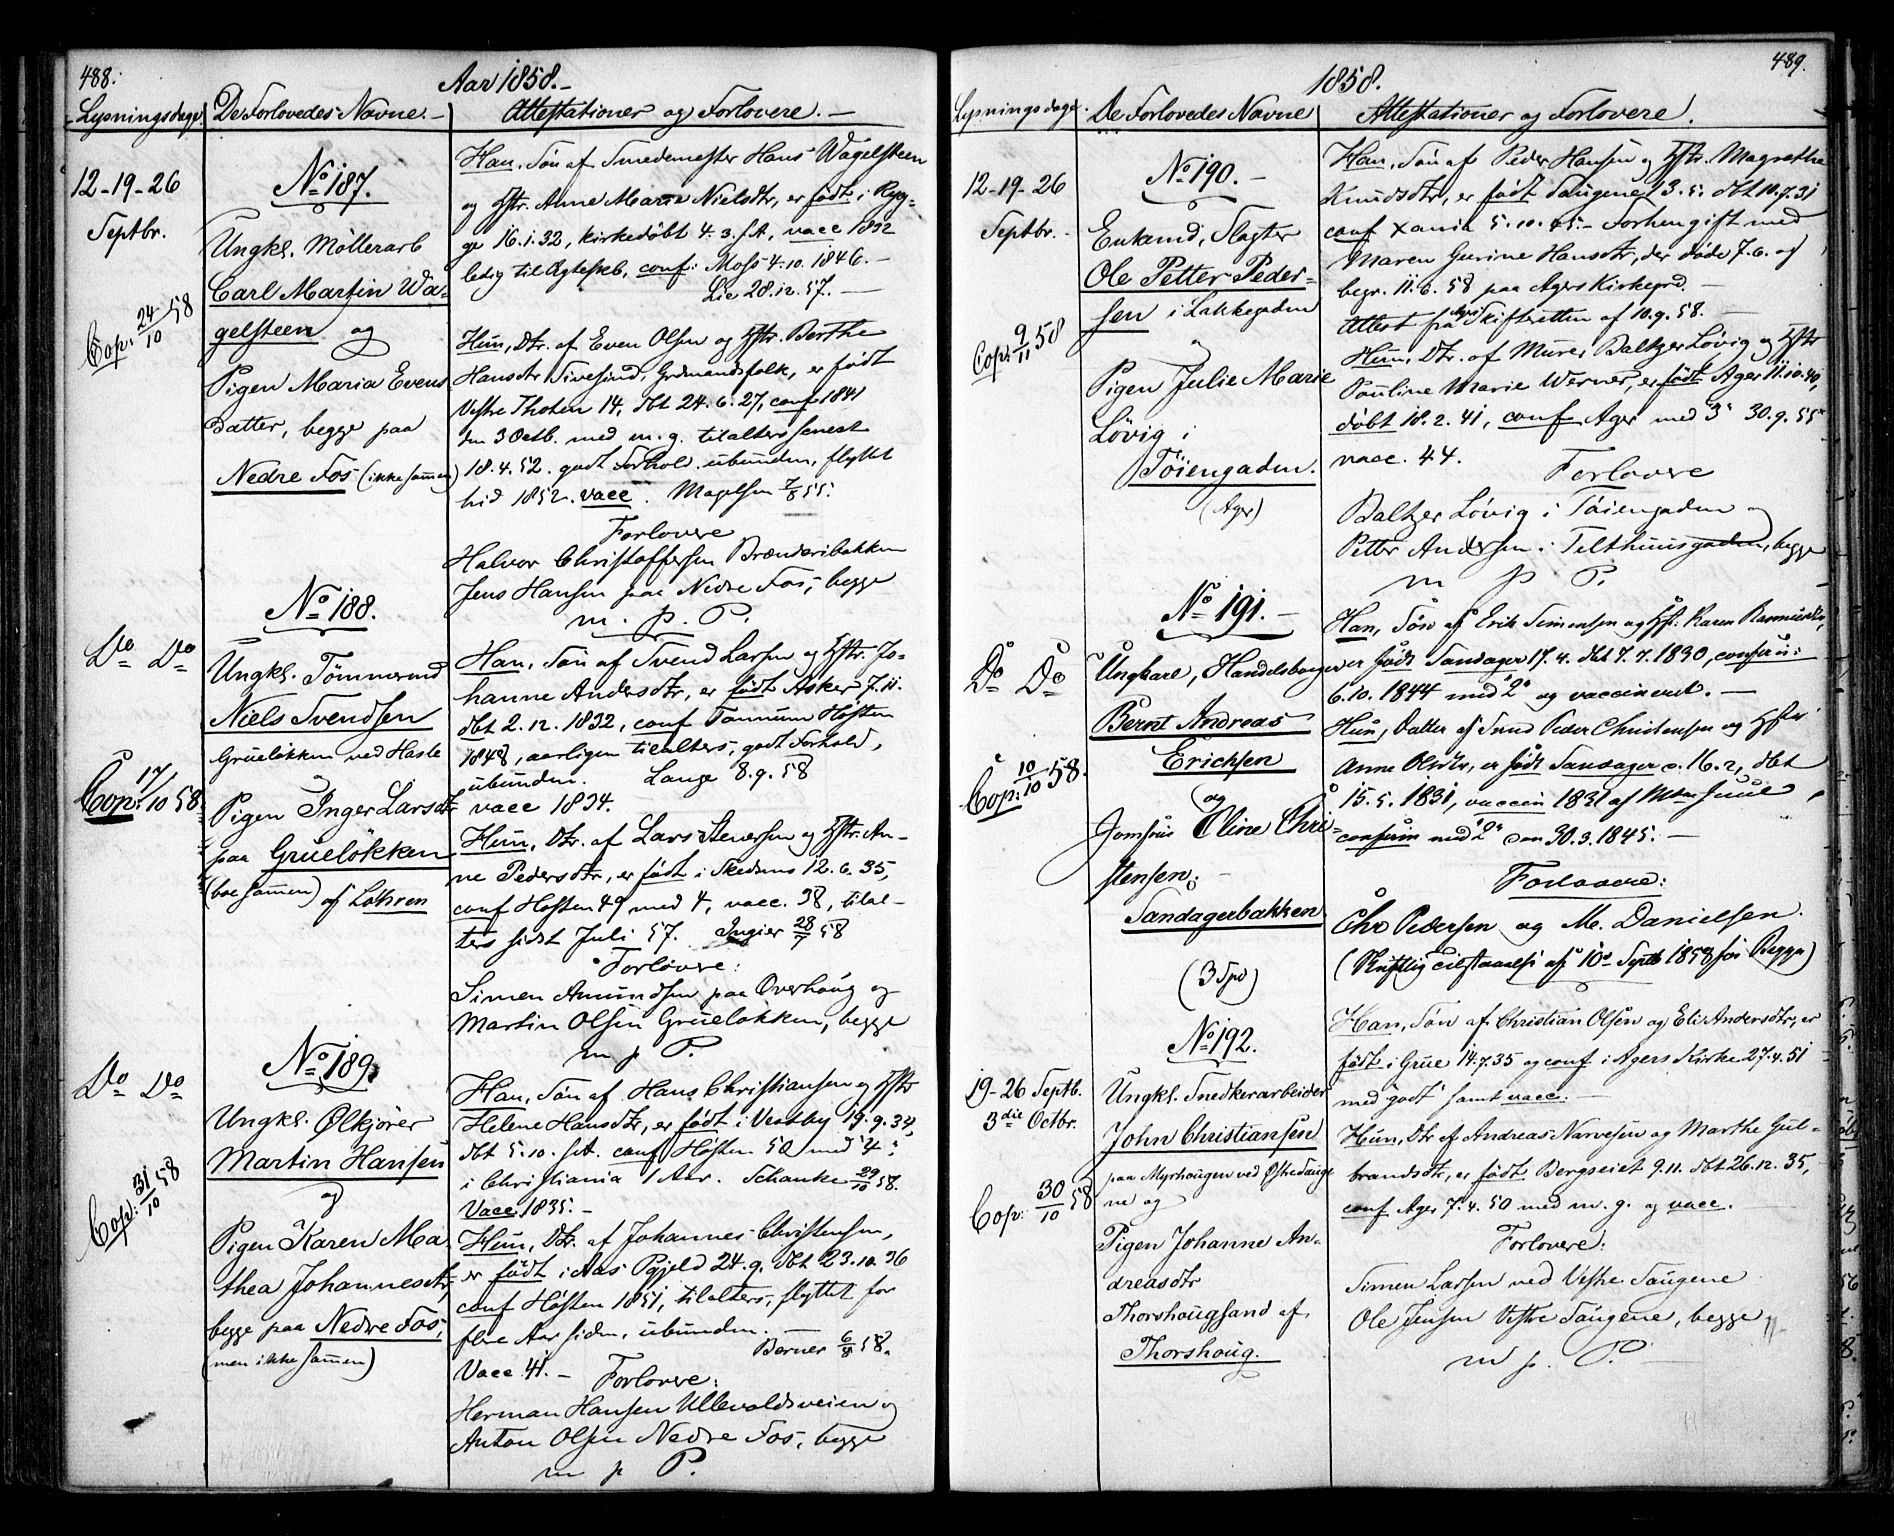 488.
Aar 1858.-
Lysningsdage
De Forlovedes Navne.-
Attestationer og Forlovere.-
12-19-26
Septbr.
Cop: 24/10 58
No 187.
Ungkl. Möllerarb
Carl Martin Wa-
gelsteen og
Pigen Maria Evens
Datter, begge paa
Nedre Fos (ikke sammen)
Han, Søn af Smedemester Hans Wagelsteen
og Hstr. Anne Marie Nielsdtr, er født i Ryg-
ge 16.1.32, kirkedöbt 4.3. s.A., vacc 1832
ledig til Ægteskb, conf: Moss 4.10.1846.-
Lie 28.12.57.-
Hun, Dtr. af Even Olsen og Hstr. Berthe
Hansdtr Sivesind, Grdmandsfolk, er født
Vestre Thoten 14, dbt 24.6.27, conf 1841
den 3 Octb. med m.g. tilalters senest
18.4.52. godt Forhold. ubunden, flyttet
hid 1852. vacc. Magelsen 7/8 55.
Forlovere
Halvor Christoffersen Brænderibakken
Jens Hansen paa Nedre Fos, begge
m. p. P.
Do Do
Cop: 17/10 58.
No 188.
Ungkl. Tömmermd
Niels Svendsen
Grueløkken ved Hasle
Pigen Inger Larsdtr
paa Grueløkken
(boe sammen) af Löhren
Han, Søn af Svend Larsen og Hstr. Jo-
hanne Andersdtr, er født Asker 7.11.
dbt 2.12.1832, conf Tanum Høsten
1848, aarligen tilalters, godt Forhold,
ubunden. Lange 8.9.58
vacc 1834.
Hun, Dtr. af Lars Stenersen og Hstr. An-
ne Pedersdtr, er født i Skedsmo 12.6.35,
conf Høsten 49 med 4, vacc. 38, tilal-
ters sidst Juli 57. Ingier 28/7 58
Forlovere:
Simen Amundsen paa Overhoug og
Martin Olsen Grueløkken, begge
m p P.
Do Do
Cop: 31/10 58
No 189.
Ungkl. Ølkjører
Martin Hansen
og
Pigen Karen Ma
thea Johannesdtr,
begge paa Nedre Fos,
(men ikke sammen)
Han, Søn af Hans Christiansen og Hstr
Helene Hansdtr, er født i Vestby 19.9.34,
dbt 5.10. s.A. conf Høsten 50 med "4";
i Christiania 1 Aar. Schanke 29/10 58.
Vacc. 1835.-
Hun, Dtr. af Johannes Christensen,
er født i Aas Pgjeld 24.9. dbt 23.10.36
conf Høsten 1851, tilalters, flyttet for
flre Aar siden, ubunden.-
Berner 6/8 58.
Vacc 41.-
Forlovere:
Herman Hansen Ullevoldsveien og
Anton Olsen Nedre Fos, begge
m p P.
489.
1858.
Lysningsdage.
De Forlovedes Navne
Attestationer og Forlovere.
12-19-26
Septbr.
Cop: 9/11 58
No 190.-
Enkemd, Slagter
Ole Petter Peder-
sen i Lakkegaden
og
Pigen Julie Marie
Lövig i
Töiengaden.
(Ager)
Han, Søn af Peder Hansen og Hstr. Magrethe
Knudsdtr, er født Saugene 13.5. dbt 10.7.31
conf Xania 5.10.45.- Forhen gift med
Maren Gurine Hansdtr, der döde 7.6. og
begr. 11.6.58 paa Agers Kirkegrd.-
Attest fra Skifteretten af 10.9.58.-
Hun, Dtr. af Murer Baltzer Lövig og Hstr
Pauline Marie Werner, er født Ager 11.10.40,
döbt 18.2.41, conf Ager med "3" 30.9.55
vacc. 44.
Forlovere
Baltzer Lövig i Töiengaden og
Petter Andersen i Telthuusgaden, begge
m p P.
Do Do
Cop: 10/10 58.
No 191.-
Ungkarl, Handelsborger
Bernt Andreas
Erichsen
og
Jomfrue Eline Chri-
stensen.
Sandagerbakken
(3 Spd)
Han, Søn af Erik Simensen og Hst: Karen Rasmusdtr,
er født Sandager 17.4. dbt 7.7.1830, confirm:
6.10.1844 med "2" og vaccineret.-
Hun, Datter af Peder Christensen og Hstr
Anne Olsdtr, er født Sandager 16.2, dbt
15.5.1831, vaccin 1831 af Juul,
confirm med "2" den 30.3.1845.-
Forlovere:
Chr Pedersen og M. Danielsen.
(Skriftlig tilstaaelse af 10d Septb 1858 for Begge)
19-26 Septb.
3die Octbr.
Cop: 30/10 58
No 192.
Ungkl. Snedkerarbeider
John Christiansen
paa Myrhaugen ved Østre Sauge
ne og
Pigen Johanne An-
dreasdtr
Thorshougsand af
Thorshoug.
Han, Søn af Christian Olsen og Eli Andersdtr, er
født i Grue 14.7.35 og conf i Agers Kirke 27.4.51
med godt samt vacc.-
Hun, Dtr af Andreas Narvesen og Marthe Gul-
brandsdtr, er født Bergseiet 9.11. dbt 26.12.35,
conf Ager 7.4.50 med m.g. og vacc.
Forlovere:
Simen Larsen ved Vestre Saugene
Ole Jensen Vestre Saugene, begge
m p. P.